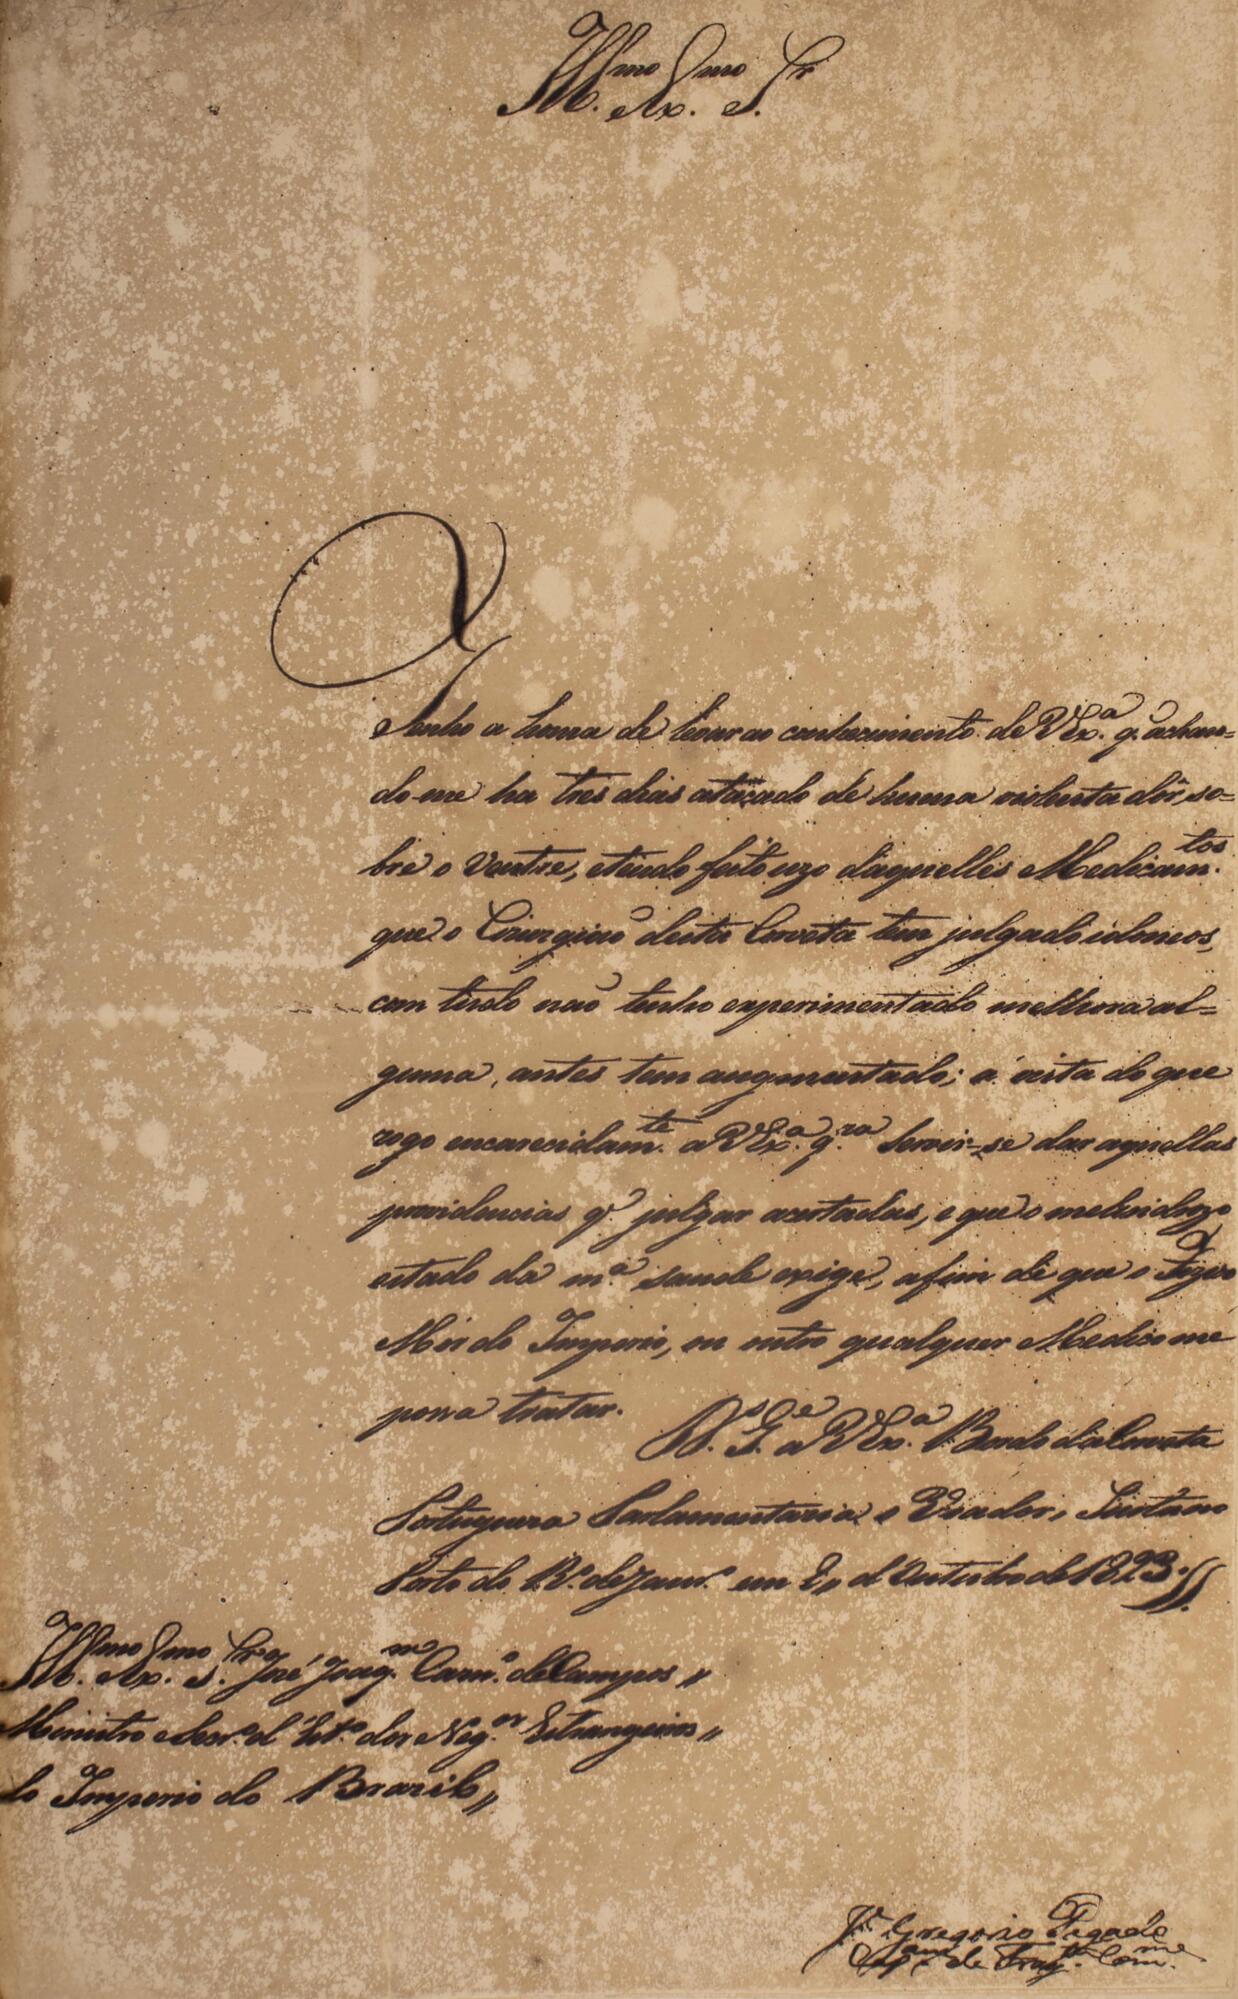 Ill.mo Ex.mo Sr.
Tenho a honra de levar ao conhecimento de V Ex.a q. achan=
do-me ha tres dias atacado de huma violenta dôr so=
bre o Ventre, e tendo feito uzo d'aquelles Medicam.tos
que o Cirurgiaõ desta Corveta tem julgado idoneos,
com tudo naõ tenho experimentado melhora al=
guma, antes tem augmentado; á vista do que
rogo encarecidam.te a V Ex.a q.ra Servir-se dar aquellas
providencias q. julgar acertadas, e que o melindrozo
estado da m.a saude exige, afim de que o Fizico
Mór do Imperio, ou outro qualquer Medico me
possa tratar.
D.s G.e a V Ex.a Bordo da Corveta
Portugueza Parlamentaria Voador, Surta no
Porto do R.o de Janr.o em 2,, d'Outubro de 1823.
Ill.mo Ex.mo Sr. José Joaq.m Carn.o de Campos,,
Ministro e Secr.o d'Est.o dos Neg.os Estrangeiros,,
do Imperio do Brazil,,
J.e Gregorio Pegado
Cap.am de Frag.ta Com.me